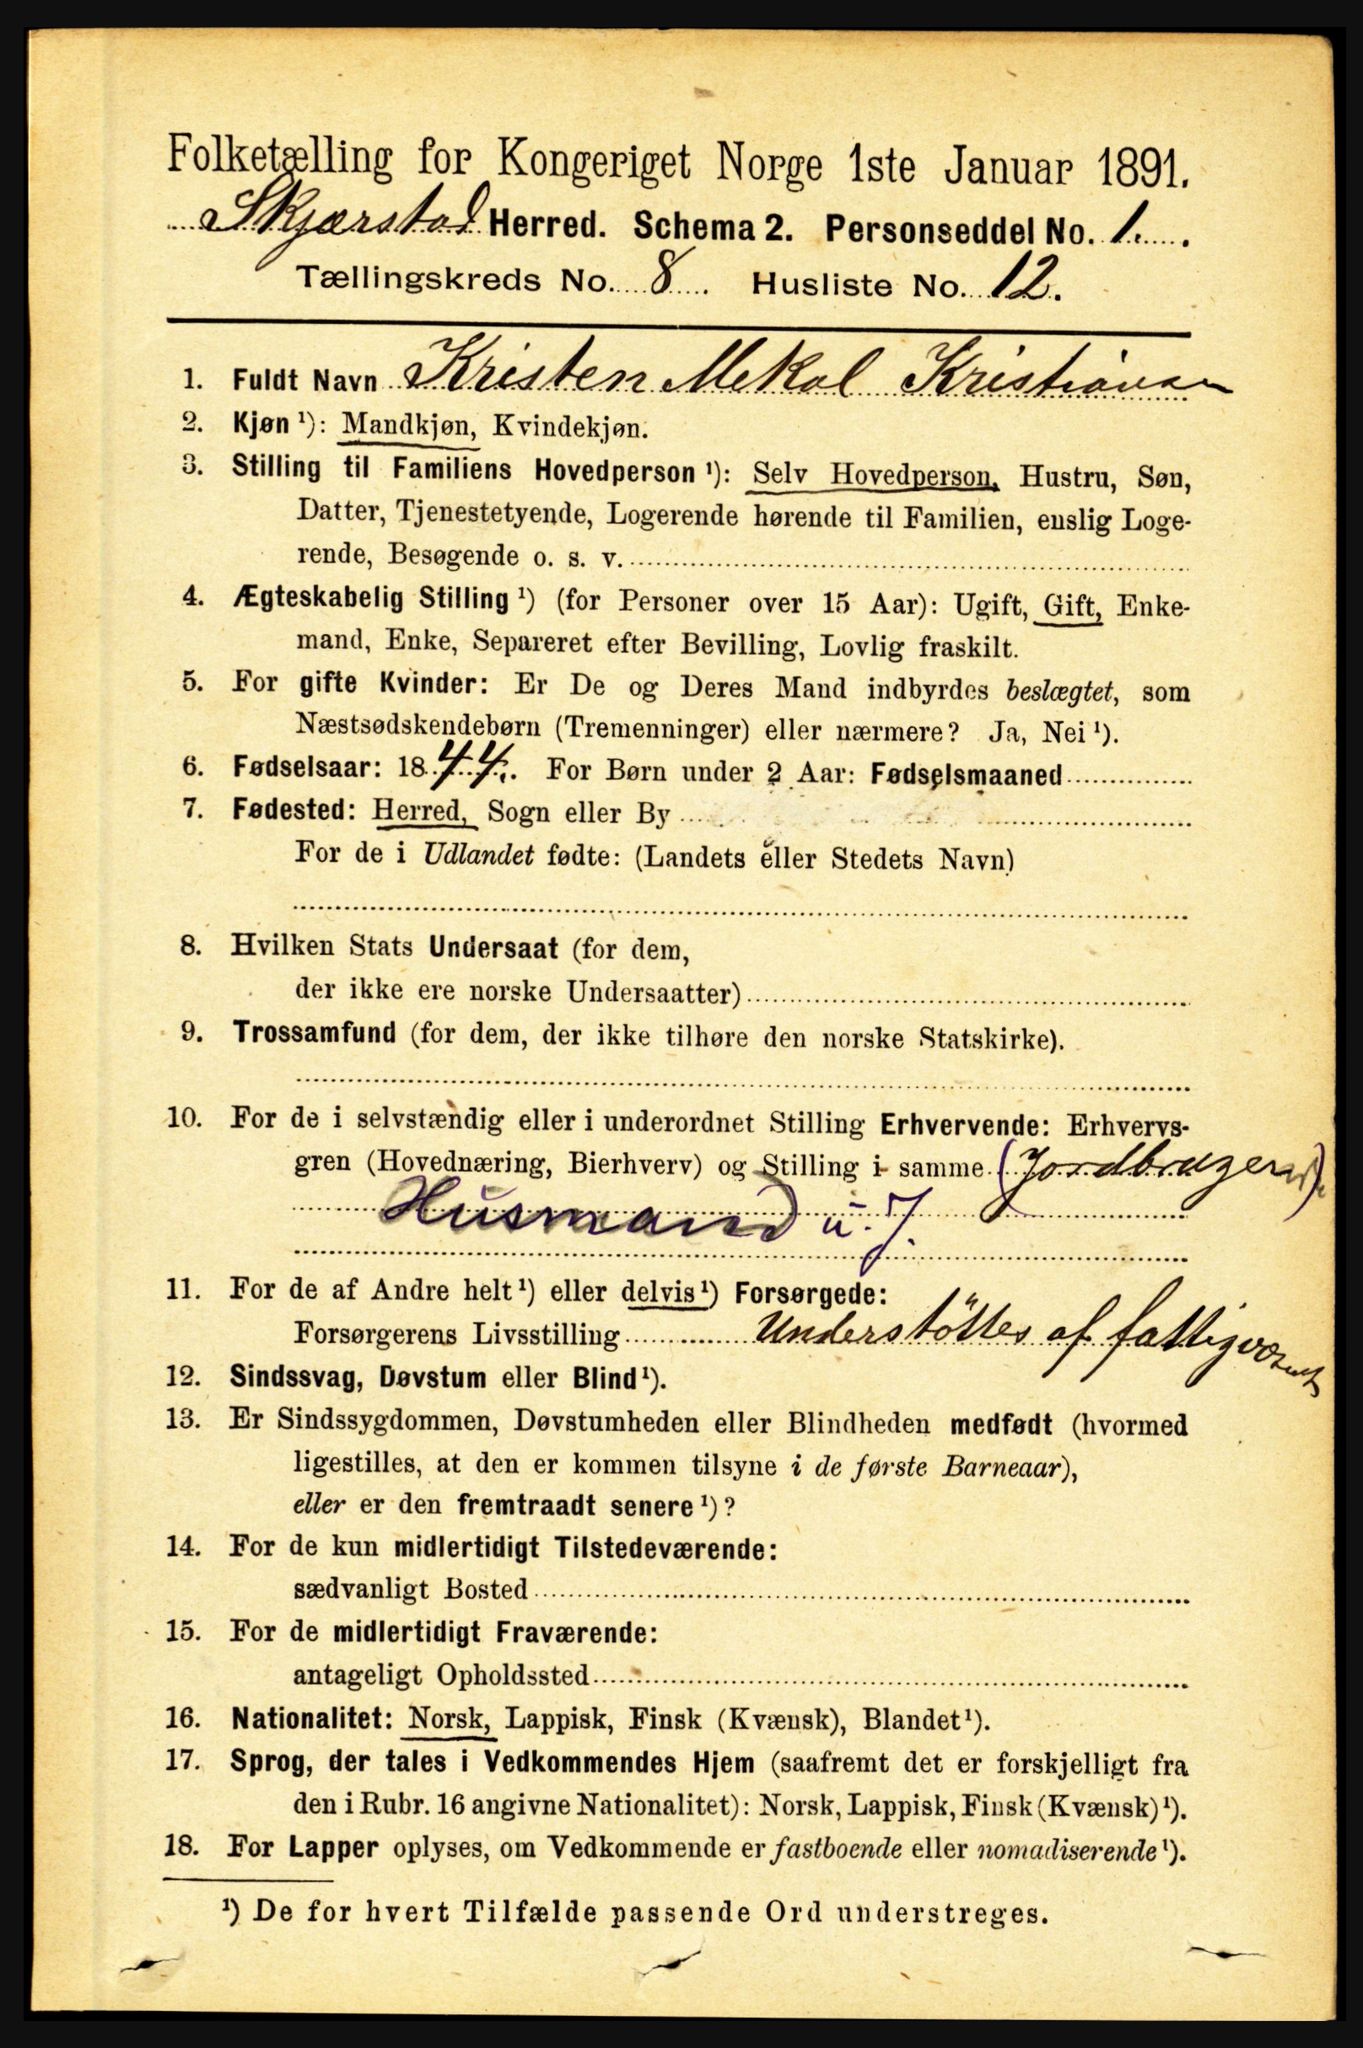 Folketælling for Kongeriget Norge 1ste Januar 1891.
Skjærstad Herred. Schema 2. Personseddel No. 1.
Tællingskreds No. 8. Husliste No. 12.
1. Fuldt Navn Kristen Mekal Kristiansen
2. Kjøn ¹): Mandkjøn, Kvindekjøn.
3. Stilling til Familiens Hovedperson ¹): Selv Hovedperson, Hustru, Søn,
Datter, Tjenestetyende, Logerende hørende til Familien, enslig Loge-
rende, Besøgende o. s. v.
4. Ægteskabelig Stilling ¹) (for Personer over 15 Aar): Ugift, Gift, Enke-
mand, Enke, Separeret efter Bevilling, Lovlig fraskilt.
5. For gifte Kvinder: Er De og Deres Mand indbyrdes beslægtet, som
Næstsødskendebørn (Tremenninger) eller nærmere? Ja, Nei ¹).
6. Fødselsaar: 1844. For Børn under 2 Aar: Fødselsmaaned
7. Fødested: Herred, Sogn eller By
For de i Udlandet fødte: (Landets eller Stedets Navn)
8. Hvilken Stats Undersaat (for dem,
der ikke ere norske Undersaatter)
9. Trossamfund (for dem, der ikke tilhøre den norske Statskirke).
10. For de i selvstændig eller i underordnet Stilling Erhvervende: Erhvervs-
gren (Hovednæring, Bierhverv) og Stilling i samme (Jordbruger)
Husmand u. J.
11. For de af Andre helt ¹) eller delvis ¹) Forsørgede:
Forsørgerens Livsstilling Understöttes af fattigvæsnet
12. Sindssvag, Døvstum eller Blind ¹).
13. Er Sindssygdommen, Døvstumheden eller Blindheden medfødt (hvormed
ligestilles, at den er kommen tilsyne i de første Barneaar),
eller er den fremtraadt senere ¹)?
14. For de kun midlertidigt Tilstedeværende:
sædvanligt Bosted
15. For de midlertidigt Fraværende:
antageligt Opholdssted
16. Nationalitet: Norsk, Lappisk, Finsk (Kvænsk), Blandet ¹).
17. Sprog, der tales i Vedkommendes Hjem (saafremt det er forskjelligt fra
den i Rubr. 16 angivne Nationalitet): Norsk, Lappisk, Finsk (Kvænsk) ¹).
18. For Lapper oplyses, om Vedkommende er fastboende eller nomadiserende ¹).
¹) De for hvert Tilfælde passende Ord understreges.